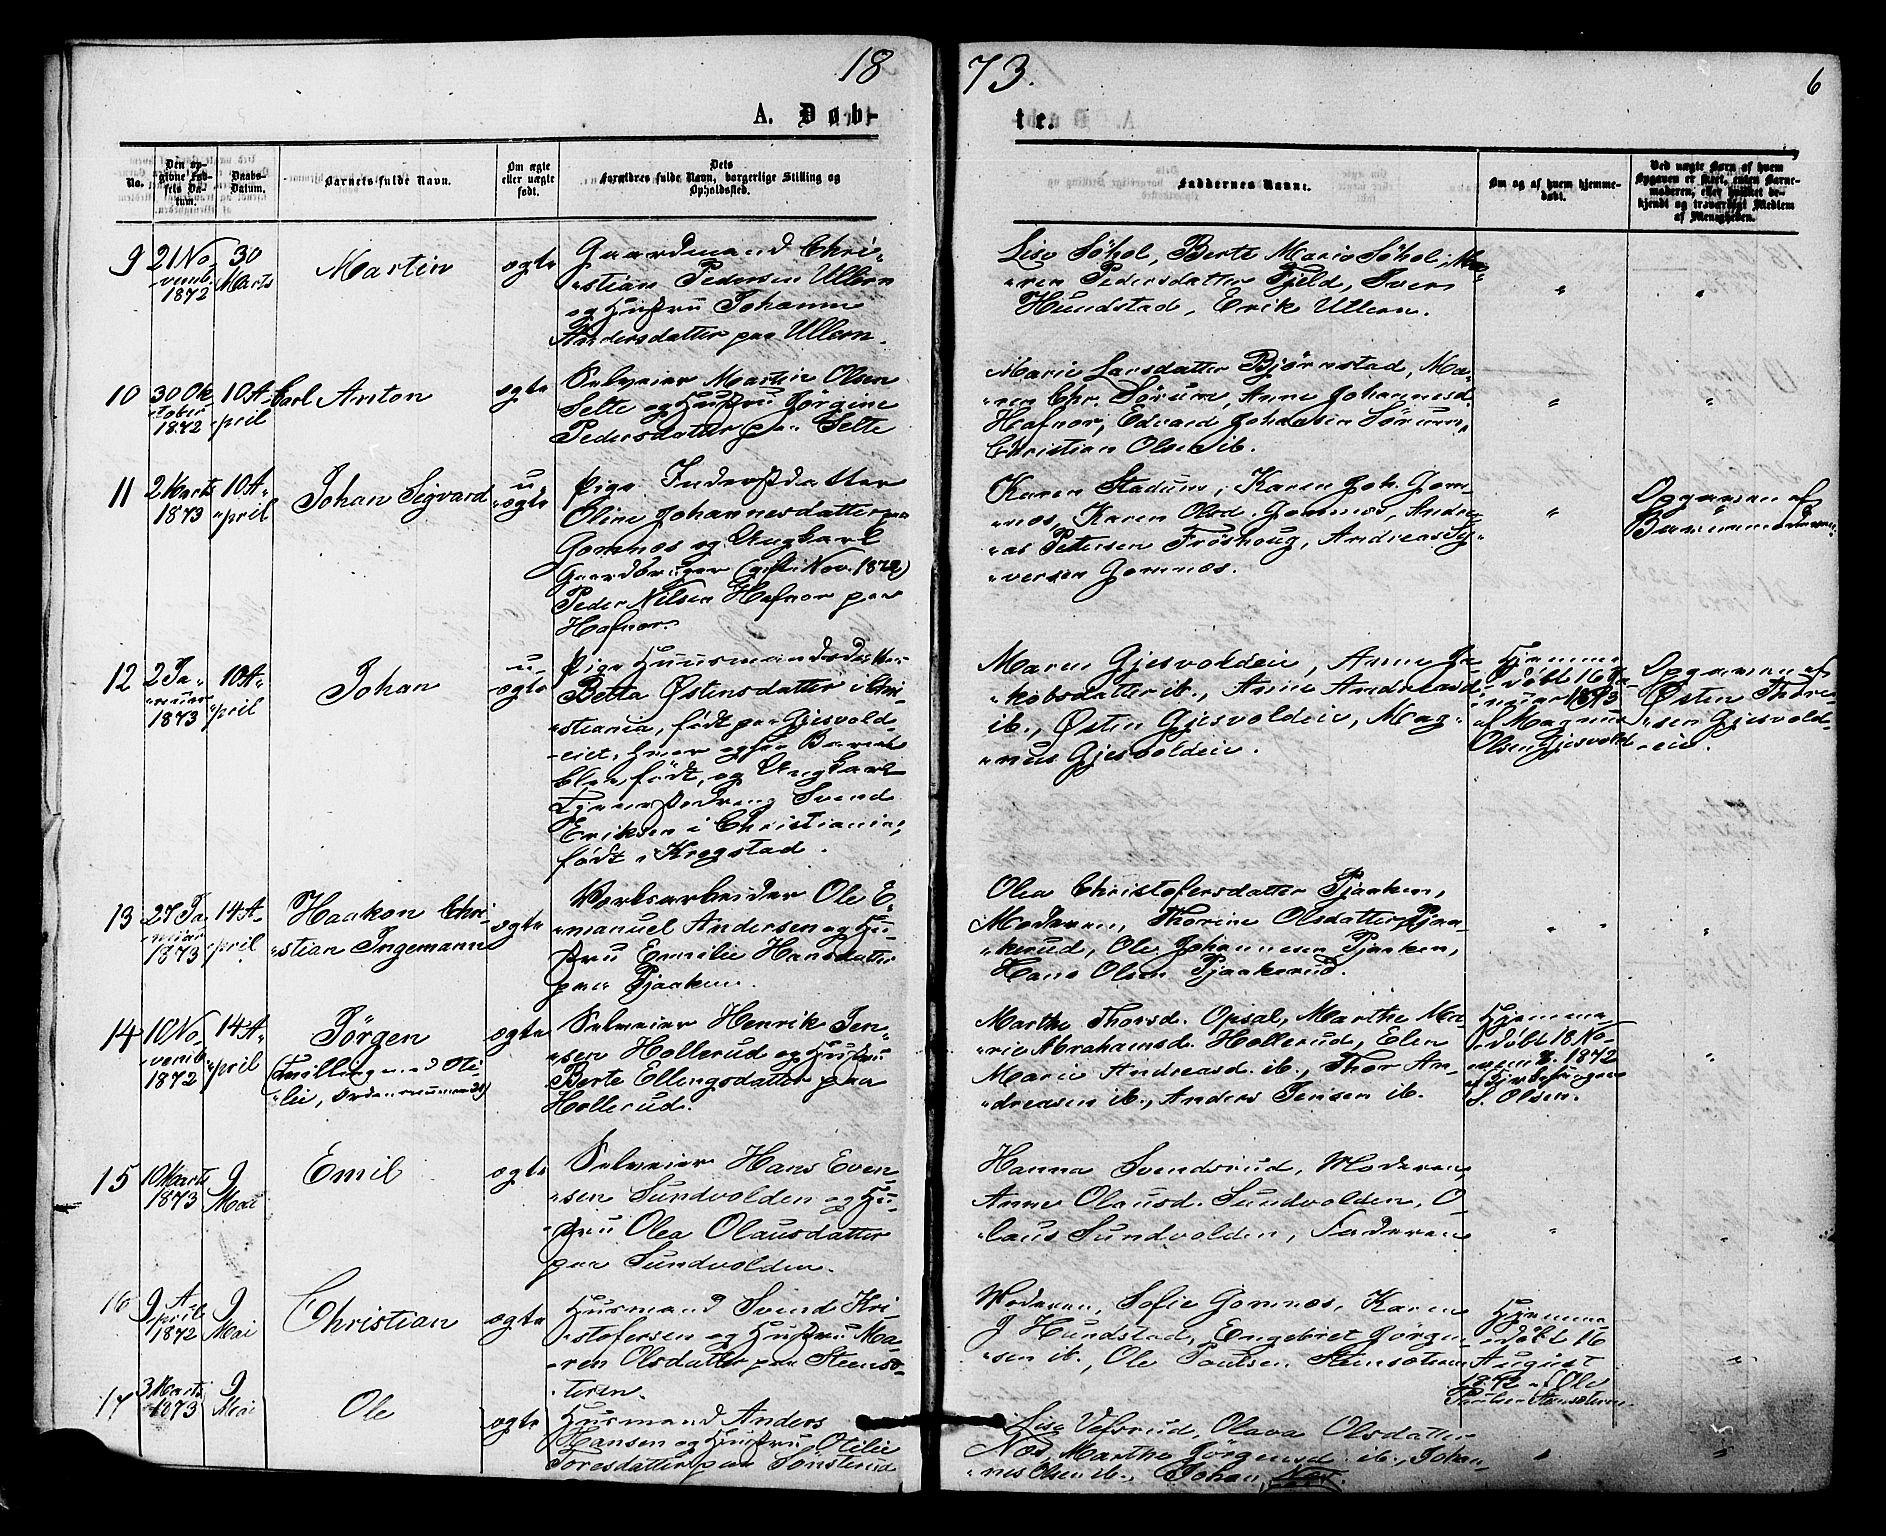 1873.
6
A. Døbte.
No.
Den opgivne Fødsels Datum.
Daabs-Datum.
Barnets fulde Navn.
Om ægte eller uægte født.
Dets Forældres fulde Navn, borgerlige Stilling og Opholdssted.
Faddernes Navne.
Om og af hvem hjemmedøbt.
Ved uægte Børn af hvem Opgaven er skeet, enten Barnemoderen, eller hvilket bekjendt og troværdigt Medlem af Menigheden.
9
21 No-
vemb.
1872
30
Marts
Martin
ægte
Gaardmand Chri-
stian Pedersen Ullern
og Hustru Johanne
Andersdatter paa Ullern.
Lise Søhol, Berte Marie Søhol, Ma-
ren Pedersdatter Fjeld, Iver
Hundstad, Erik Ullern.
"
"
10
30 Ok-
tober
1872
10 A-
pril
Carl Anton
ægte
Selveier Martin Olsen
Selte og Hustru Jørgine
Pedersdatter paa Selte
Marie Larsdatter Bjørnstad, Ma-
ren Chr. Sørum, Anne Johannesd.
Hafnor, Edvard Johansen Sørum,
Christian Olsen ib.
"
"
11
2 Marts
1873
10 A-
pril
Johan Sigvard
u-
ægte
Pige Inderstdatter
Oline Johannesdatter paa
Gomnæs og Ungkarl
Gaardbruger (gift i Nov. 1872)
Peder Nilsen Hafnor paa
Hafnor.
Karen Stadum, Karen Joh. Gom-
næs, Karen Olsd. Gomnæs, Andre-
as Petersen Frøshoug, Andreas Sy-
versen Gomnæs.
"
Opgaven af
Barnemoderen.
12
2 Ja-
nuar
1873
10 A-
pril
Johan
u-
ægte
Pige Huusmandsdatter
Betta Østensdatter i Chri-
stiania, født paa Gjesvold-
eiet, hvor ogsaa Barnet
blev født, og Ungkarl
Tjenestedreng Svend
Eriksen i Christiania,
født i Kragstad.
Maren Gjesvoldeie, Anne Ja-
kobsdatter ib., Anne Andreasd.
ib., Østen Gjesvoldeie, Mag-
nus Gjesvoldeie.
Hjemme-
døbt 16 Ja-
nuar 1873
af Magnus
Olsen Gjesvold
Opgaven af
Østen Thore-
sen Gjesvold-
eie.
13
27 Ja-
nuar
1873
14 A-
pril
Haakon Chri-
stian Ingemann
ægte
Verksarbeider Ole E-
manuel Andersen og Hu-
stru Emilie Hansdatter
paa Pjaaken.
Olea Christofersdatter Pjaaken,
Moderen, Thorine Olsdatter Pjaa-
kerud, Ole Johannesen Pjaaken,
Hans Olsen Pjaakerud.
" "
"
14
10 No-
vemb.
1872
14 A-
pril
Jörgen
(Tvilling med Oti-
lie,
ægte
Selveier Henrik Jen-
sen Hollerud og Hustru
Berte Ellingsdatter paa
Hollerud.
Marthe Thorsd. Opsal, Marthe Ma-
rie Abrahamsd. Hollerud, Elen
Marie Andreasd. ib., Thor An-
dreasen ib., Anders Jensen ib.
Hjemme-
døbt 18 No-
vemb. 1872
af Kirkesanger
S. Olsen.
"
15
10 Marts
1873
9
Mai
Emil
ægte
Selveier Hans Even-
sen Sundvolden og Hu-
stru Olea Olausdatter
paa Sundvolden.
Hanna Svendsrud, Moderen,
Anne Olausd. Sundvolden, O-
laus Sundvolden, Faderen
"
"
16
9 A-
pril
1872
9
Mai
Christian
ægte
Husmand Svend Kri-
stofersen og Hustru Ma-
ren Olsdatter paa Steensæ-
teren.
Moderen, Sofie Gomnæs, Karen
J Hundstad, Engebret Jørgen-
sen ib., Ole Paulsen Stensæteren
Hjemme-
døbt 16
August
1872 af Ole
Paulsen Stensæteren.
"
17
3 Marts
1873
9
Mai
Ole
ægte
Husmand Anders
Hansen og Hustru Otilie
Toresdatter paa Tønsterud
Lise Vefsrud, Olava Olsdatter
Næs, Marthe Jørgensd. ib., Johan-
nes Olsen ib., Johan Næs.
"
"